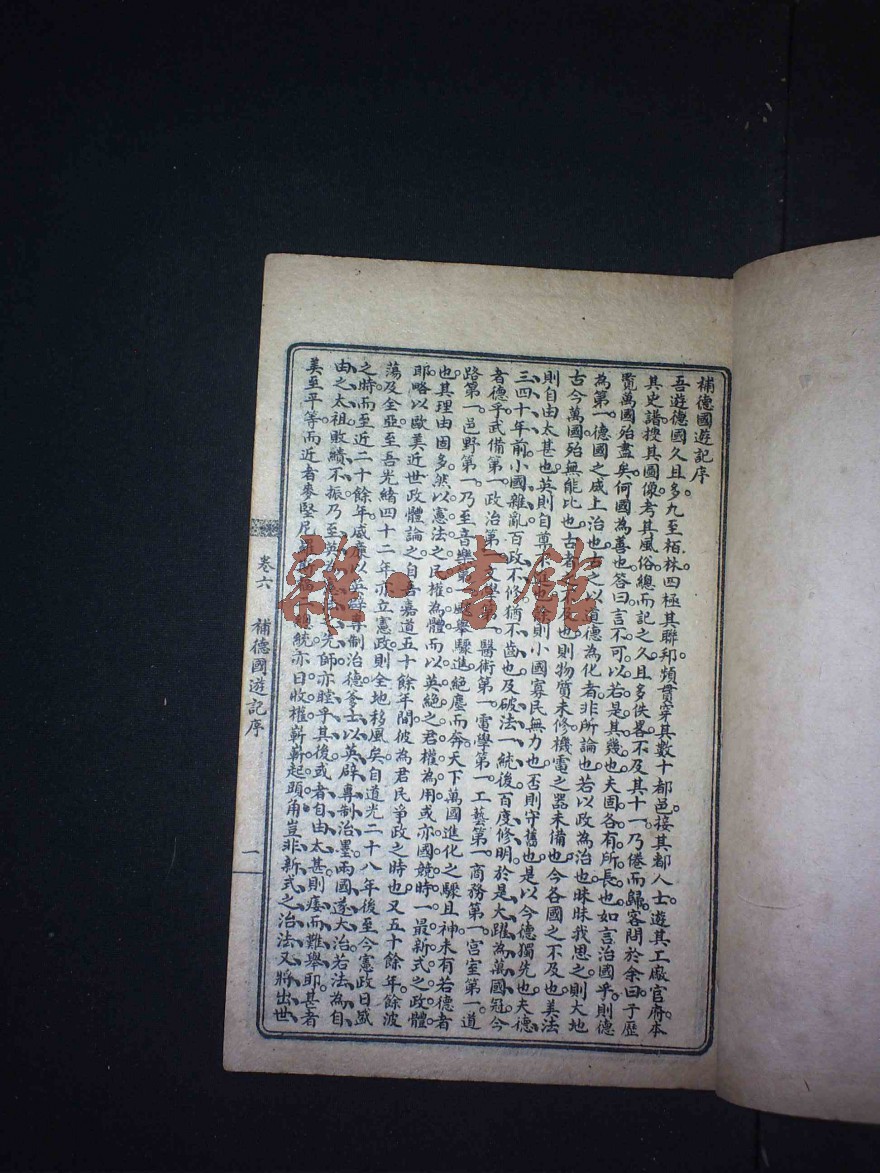 補德國遊記序
吾遊德國久且多九至柏林四極其聯邦頻貫穿其數十都邑。接其都人士。遊其工廠官府。本
其史譜搜其圖像。考其風俗總而記之久且多佚畧不及其十一乃倦而歸。客問於余曰子歷
覽萬國殆盡矣。何國為善也。答曰。言不可以若是其幾也。夫固各有所長也。如言治國乎。則德
為第一。德國之成上治也。古之以道德為化者。非所論也。若以政為治也。昧昧我思之。則大地
古今萬國殆無能比也。古者之不及也。則物質未修。機電之器未備也。今各國之不及也。美法
則自由太甚也。英則自尊也。餘則小國寡民無力也。否則守舊也。是以今德獨先也。夫德
三四十年前小國雜亂。百政不修。猶不齒也。及破法一統後。百度修明。於是大躍為萬國冠。今
者德乎。武備第一。政治第一。文學第一。醫術第一。電學第一。工藝第一。商務第一。宮室第一。道
路第一。邑野第一。乃至音樂第一。舉驟進。絕塵而奔。天下萬國進化之驟且神。未有若德者
也。其理由固多。然以憲法之民權為體。而以英絕之君權為用。或亦國競時一最新式之政體
耶。略以歐美近世政體論之。自吾嘉道五十餘年間。彼為君民爭政之時也。又五十餘年。餘波
蕩及全亞。至吾光緒四十二年。亦立憲政。則全地移風矣。自道光二十八年後。至今憲政日盛
之時。而至近二十餘年。威廉以英辟專制治德。爹士以英辟專制治墨。兩國遂大治。若法為自
由之太祖。敗績不振。乃至英為先師。亦瞠乎其後。或者自由太甚。則痿而難舉耶。甚者
美至平等。而近者麥堅尼羅斯福二總統。亦日收權。嶄嶄起頭角。豈非新式之治法。又將出世
卷六
補德國遊記序
一
雜·書館